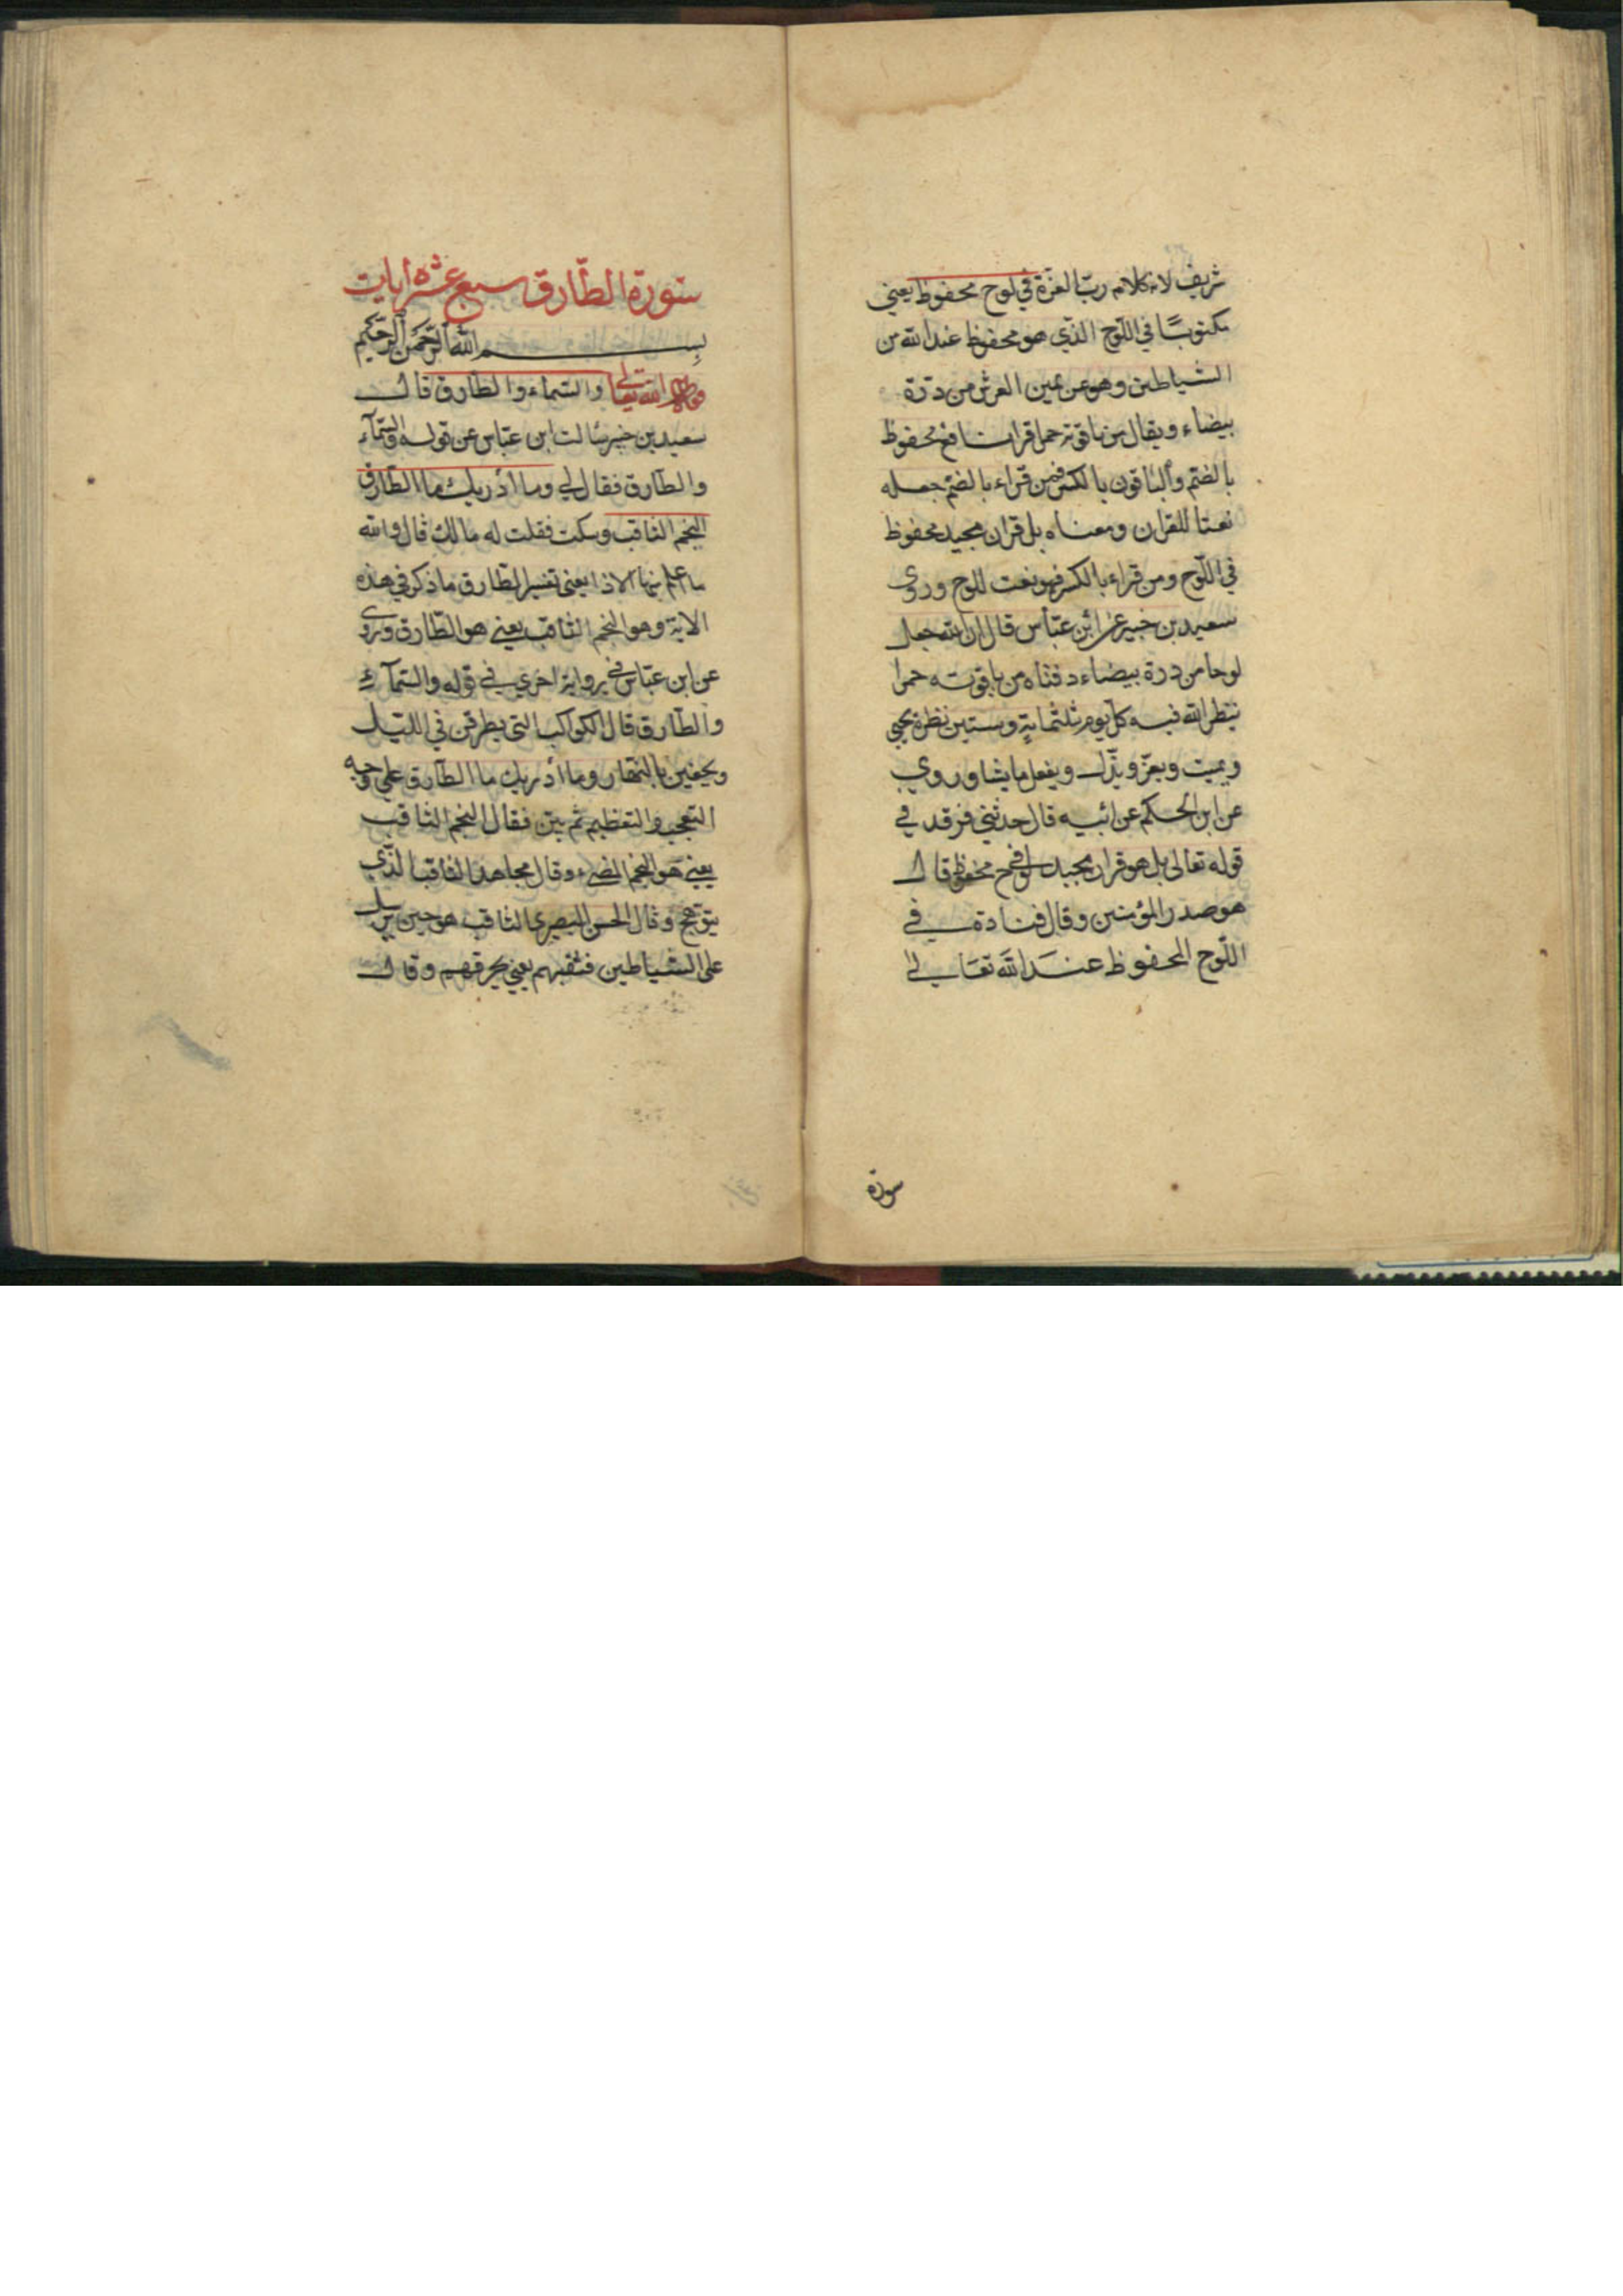 شريف لانه كلام ربّ العزة في لوح محفوظ يعني
مكتوبًا في اللّوح الذّي هو محفوظ عند الله من
الشياطين وهو عن يمين العرش من درّة
بيضاء ويقال من ياقوتة حمرا قرا نافع محفوظ
بالضمّ والباقون بالكسر فمن قراء بالضمّ جعله
نعتا للقران ومعناه بل قران مجيد محفوظ
في اللّوح ومن قراء بالكسر فهو نعت للوح وروى
سعيد بن جبير عن ابن عبّاس قال ان الله جعل
لوحا من درة بيضاء دفتاه من ياقوته حمرا
ينظر الله فيه كل يوم ثلثماية وستين نظرة يحيى
ويميت ويعزّ ويذّل ويفعل ما يشا وروي
عن ابن الحكم عن ابيه قال حدثني فرقد في
قوله تعالى بل هو قران مجيد في لوح محفوظ قال
هو صدر المؤمنين وقال قتادة في
اللّوح المحفوظ عند الله تعالى
سورة
سورة الطّارق سبع عشرة ايات
بسم الله الرّحمن الرّحيم
الله تعالى والسّماء والطّارق قال
سعيد بن جبير سالت ابن عبّاس عن قوله والسّمآء
والطارق فقال لي وما أدريك ما الطّارق
النجم الثاقب وسكت فقلت له مالك قال والله
ما اعلم منها الا ذا يعنى تفسير الطّارق ما ذكر في هذه
الاية وهو النجم الثاقب يعني هو الطّارق وروى
عن ابن عبّاس في رواية اخرى في قوله والسّمآء
والطّارق قال الكواكب التى يطرقن في اللّيل
ويخفين بالنهار وما أدريك ما الطّارق على وجه
التعجب والتعظيم ثم بين فقال النجم الثاقب
يعني هو النجم المضيء وقال مجاهد الثاقب الذّي
يتوهج وقال الحسن البصري الثاقب هو حين يرسل
على الشياطين فتثقبهم يعني يحرقهم وقال